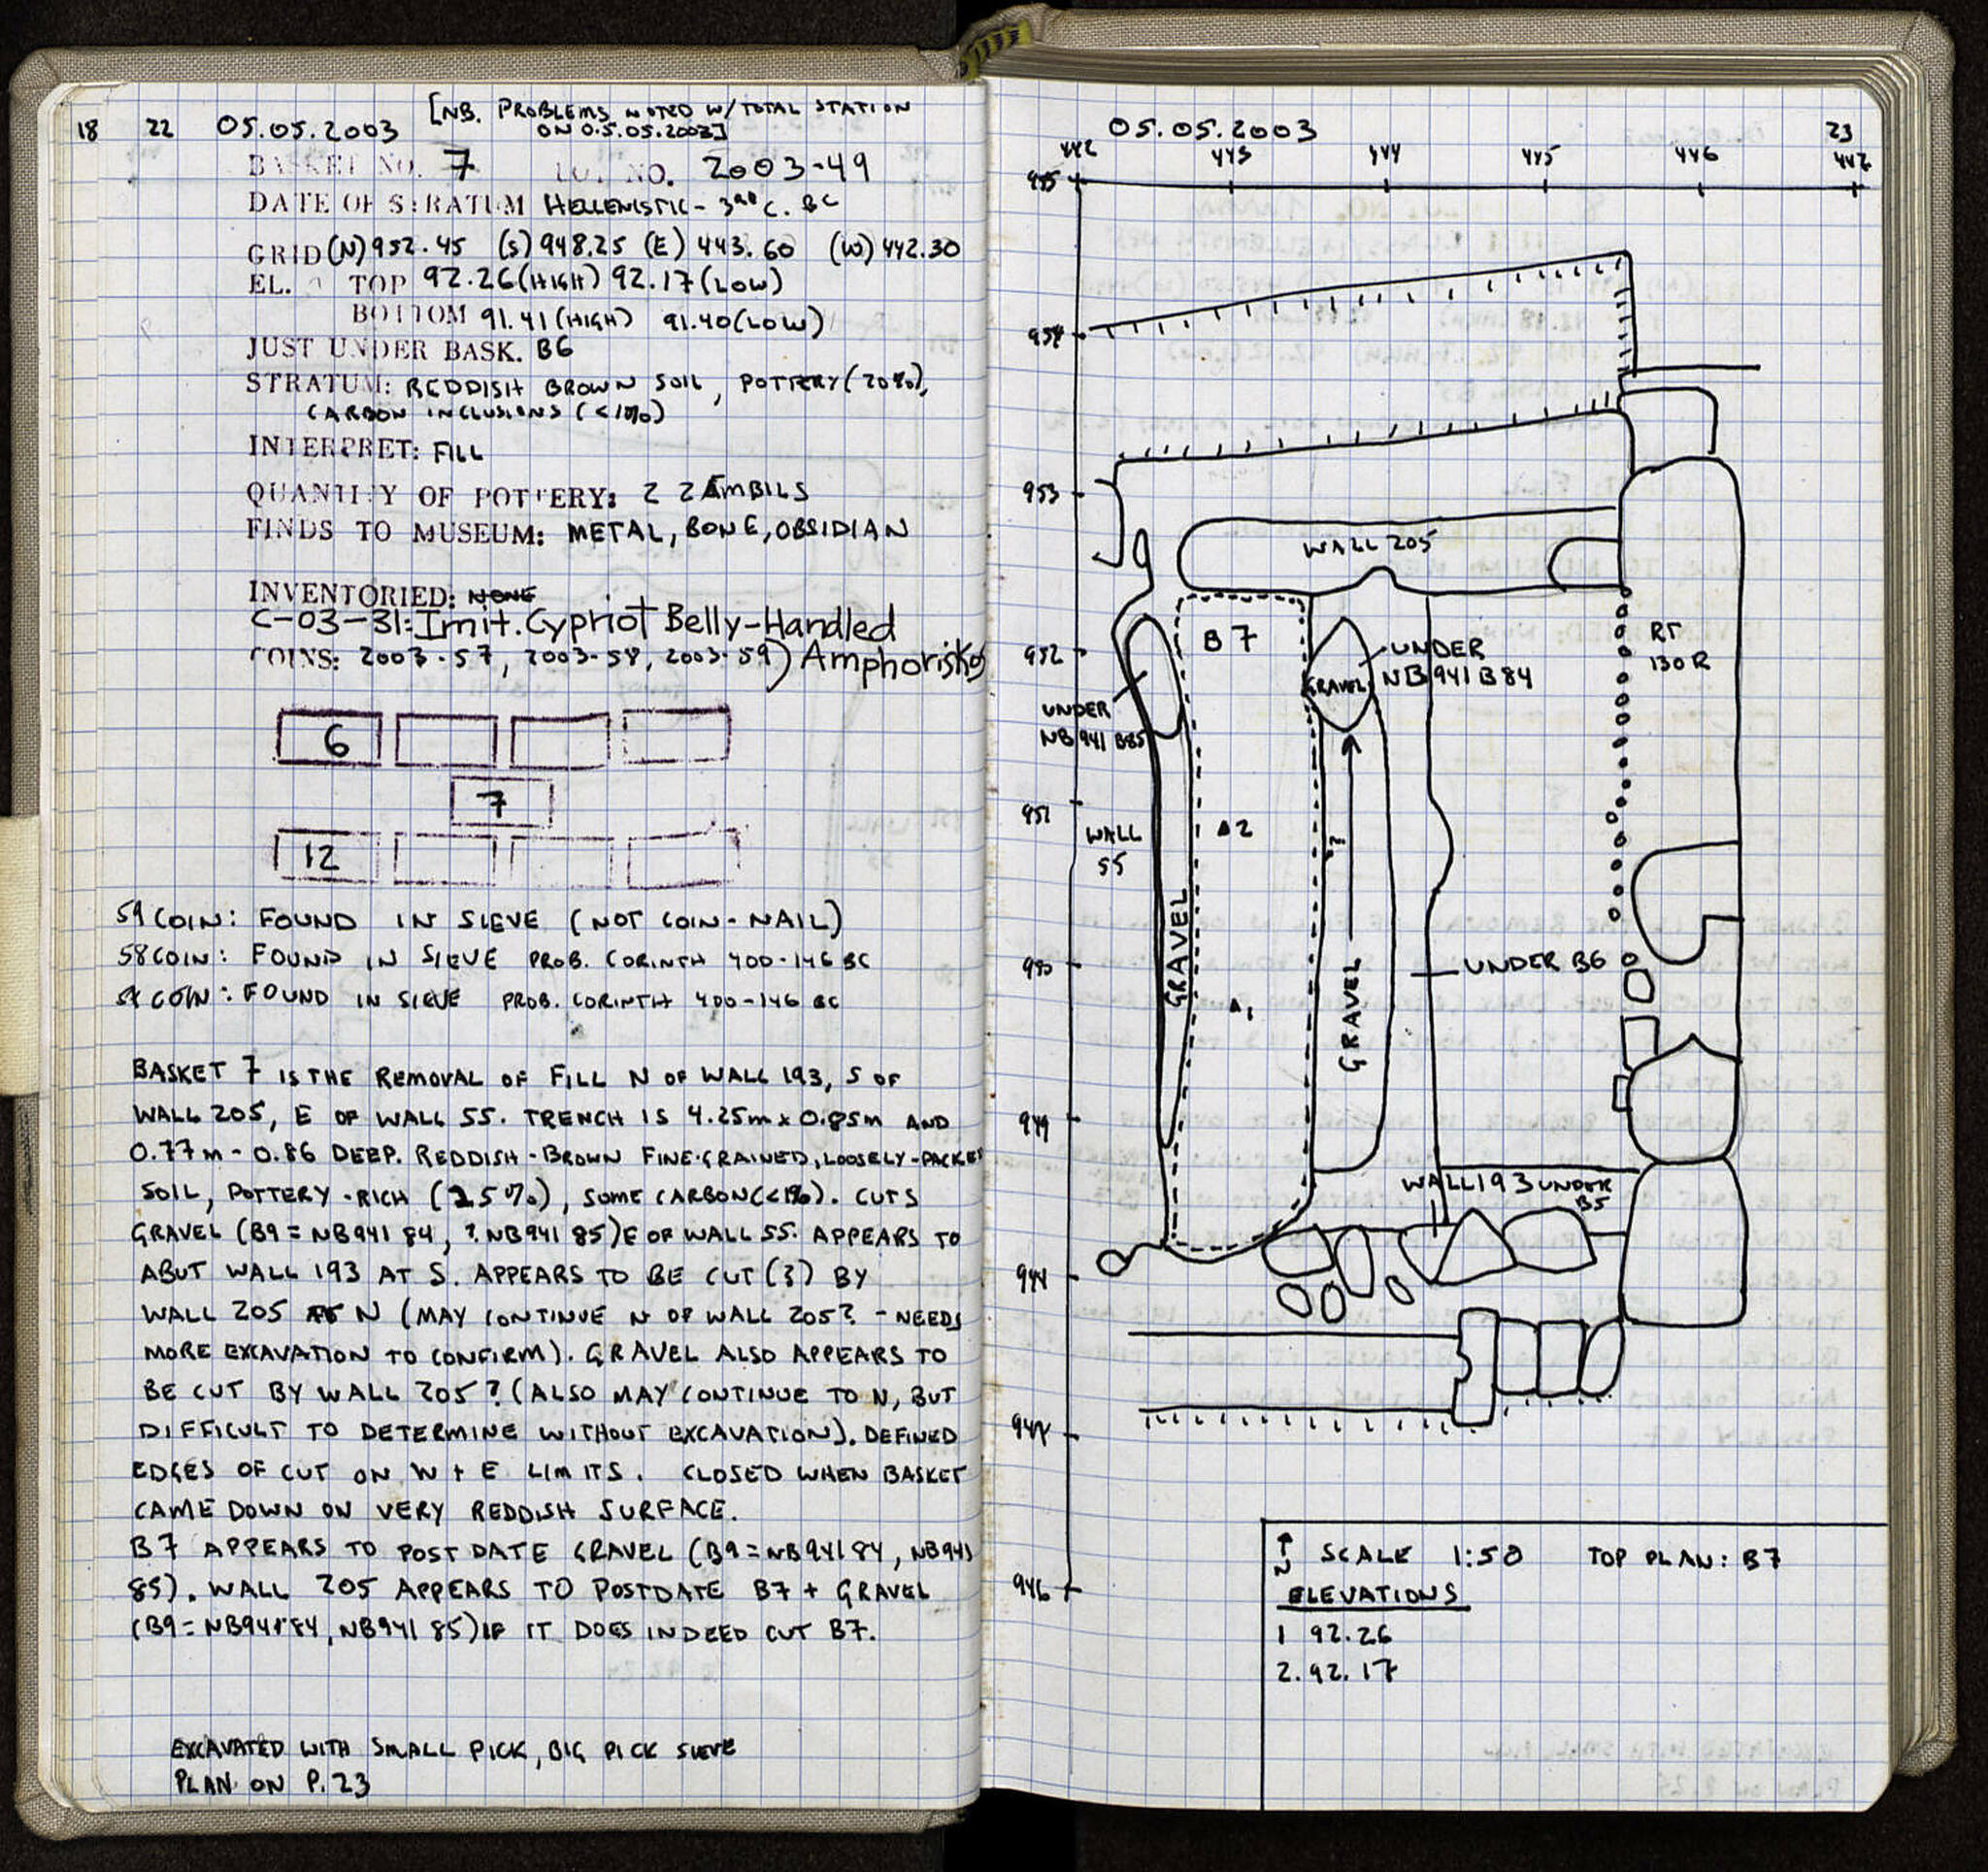 18 22 05.05.2003 [NB. PROBLEMS NOTED W/TOTAL STATION
ON 0.5.05.2003]
BASKET NO. 7 LOT NO. 2003-49
DATE OF STRATUM HELLENISTIC - 3RD C. BC
GRID (N) 952.45 (S) 948.25 (E) 443.60 (W) 442.30
EL. TOP 92.26 (HIGH) 92.17 (LOW)
BOTTOM 91.41 (HIGH) 91.40 (LOW)
JUST UNDER BASK. B6
STRATUM: REDDISH BROWN SOIL, POTTERY (20%),
CARBON INCLUSIONS (<1%)
INTERPRET: FILL
QUANTITY OF POTTERY: 2 ZAMBILS
FINDS TO MUSEUM: METAL, BONE, OBSIDIAN
INVENTORIED: NONE
C-03-31: Imit. Cypriot Belly-Handled
COINS: 2003-57, 2003-58, 2003-59) Amphoriskos
6
7
12
59 COIN: FOUND IN SIEVE (NOT COIN-NAIL)
58 COIN: FOUND IN SIEVE PROB. CORINTH 400-146 BC
COIN: FOUND IN SIEVE PROB. CORINTH 400-146 BC
BASKET 7 IS THE REMOVAL OF FILL N OF WALL 193, S OF
WALL 205, E OF WALL 55. TRENCH IS 4.25m x 0.85m AND
0.77m - 0.86 DEEP. REDDISH-BROWN FINE-GRAINED, LOOSELY-PACKED
SOIL, POTTERY-RICH (25%), SOME CARBON (<1%). CUTS
GRAVEL (B9 = NB941 84, ? NB941 85) E OF WALL 55. APPEARS TO
ABUT WALL 193 AT S. APPEARS TO BE CUT (?) BY
WALL 205 AT N (MAY CONTINUE N OF WALL 205? - NEEDS
MORE EXCAVATION TO CONFIRM). GRAVEL ALSO APPEARS TO
BE CUT BY WALL 205? (ALSO MAY CONTINUE TO N, BUT
DIFFICULT TO DETERMINE WITHOUT EXCAVATION). DEFINED
EDGES OF CUT ON W + E LIMITS. CLOSED WHEN BASKET
CAME DOWN ON VERY REDDISH SURFACE.
B7 APPEARS TO POST DATE GRAVEL (B9 = NB941 84, NB941
85). WALL 205 APPEARS TO POSTDATE B7 + GRAVEL
(B9 = NB941 84, NB941 85) IF IT DOES INDEED CUT B7.
EXCAVATED WITH SMALL PICK, BIG PICK SIEVE
PLAN ON P. 23
05.05.2003 23
442 443 444 445 446 447
955
954
953
WALL 205
952
B7
UNDER
NB 941 B84
GRAVEL
RT
130R
UNDER
NB 941 B85
951
WALL
55
▵2
?
GRAVEL
950
UNDER B6
▵1
GRAVEL
949
WALL 193 UNDER
B5
948
947
946
N SCALE 1:50 TOP PLAN: B7
ELEVATIONS
1 92.26
2. 92.17